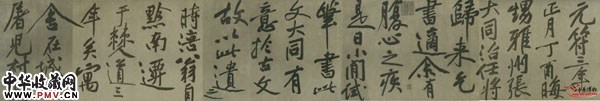 元符三年
正月丁酉晦
甥雅州張
大同治任將
歸來乞
書適余有
腹心之疾
是日小閒試
筆書此
文大同有
意於古文
故以此遺之
時涪翁自
黔南遷
于僰道三
年矣寓
舍在城南
屠兒村
中华收藏网
WWW.PMV.CN